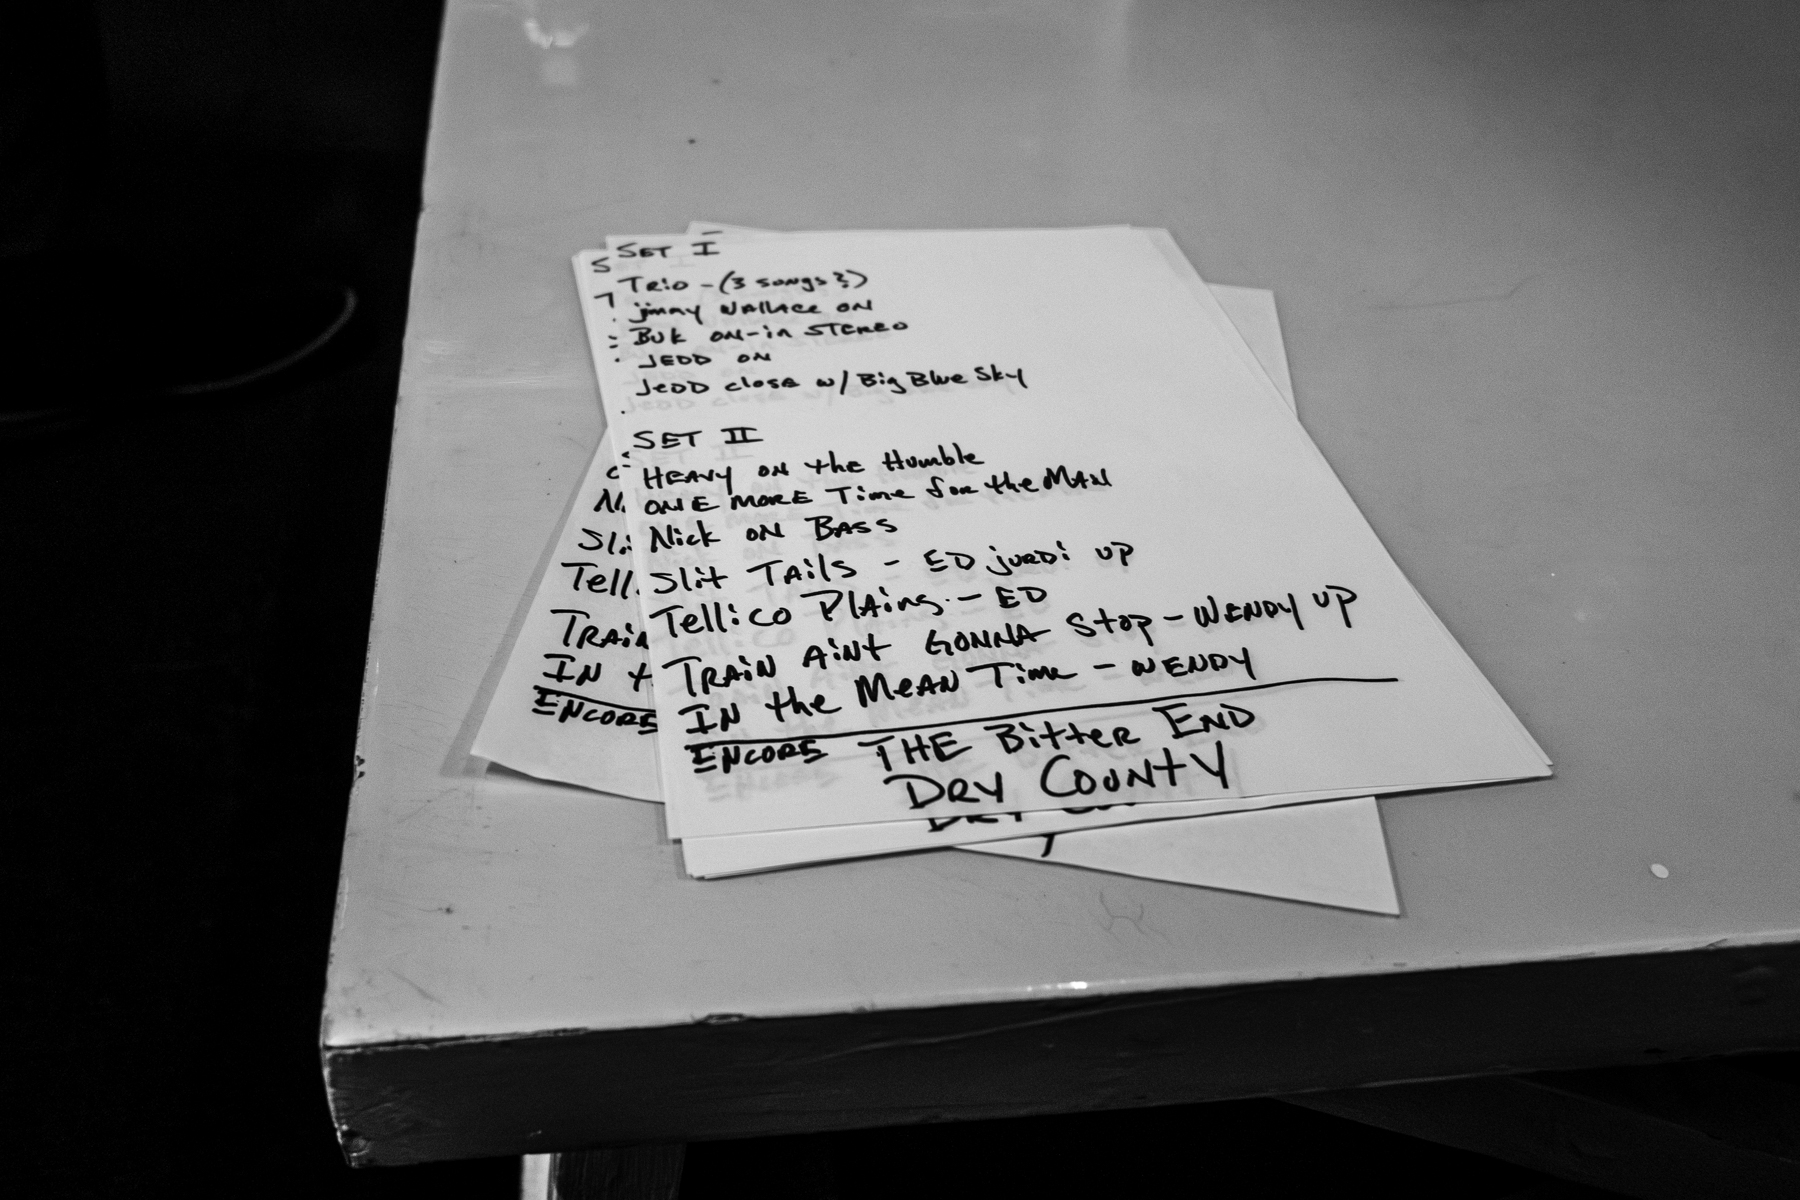 SET I
TRiO - (3 songs?)
jimmy WALLAce ON
BUK ON-in STEREO
JEDD ON
JEDD close w/ Big Blue Sky
SET II
HEAVY ON the Humble
ONE MORE Time for the MAN
Nick ON BASS
Slit TAils - ED jURDi UP
Tellico PlAins - ED
TRAiN AiNt GONNA Stop - WENDY UP
IN the MEAN Time - WENDY
ENCORE THE BittER END
DRY COUNtY